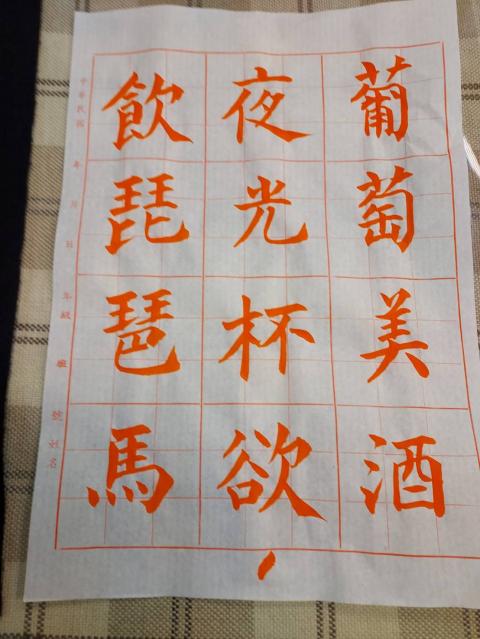 葡萄美酒
夜光杯欲
飲琵琶馬
中華民國 年 月 日 年級 班 號 姓名